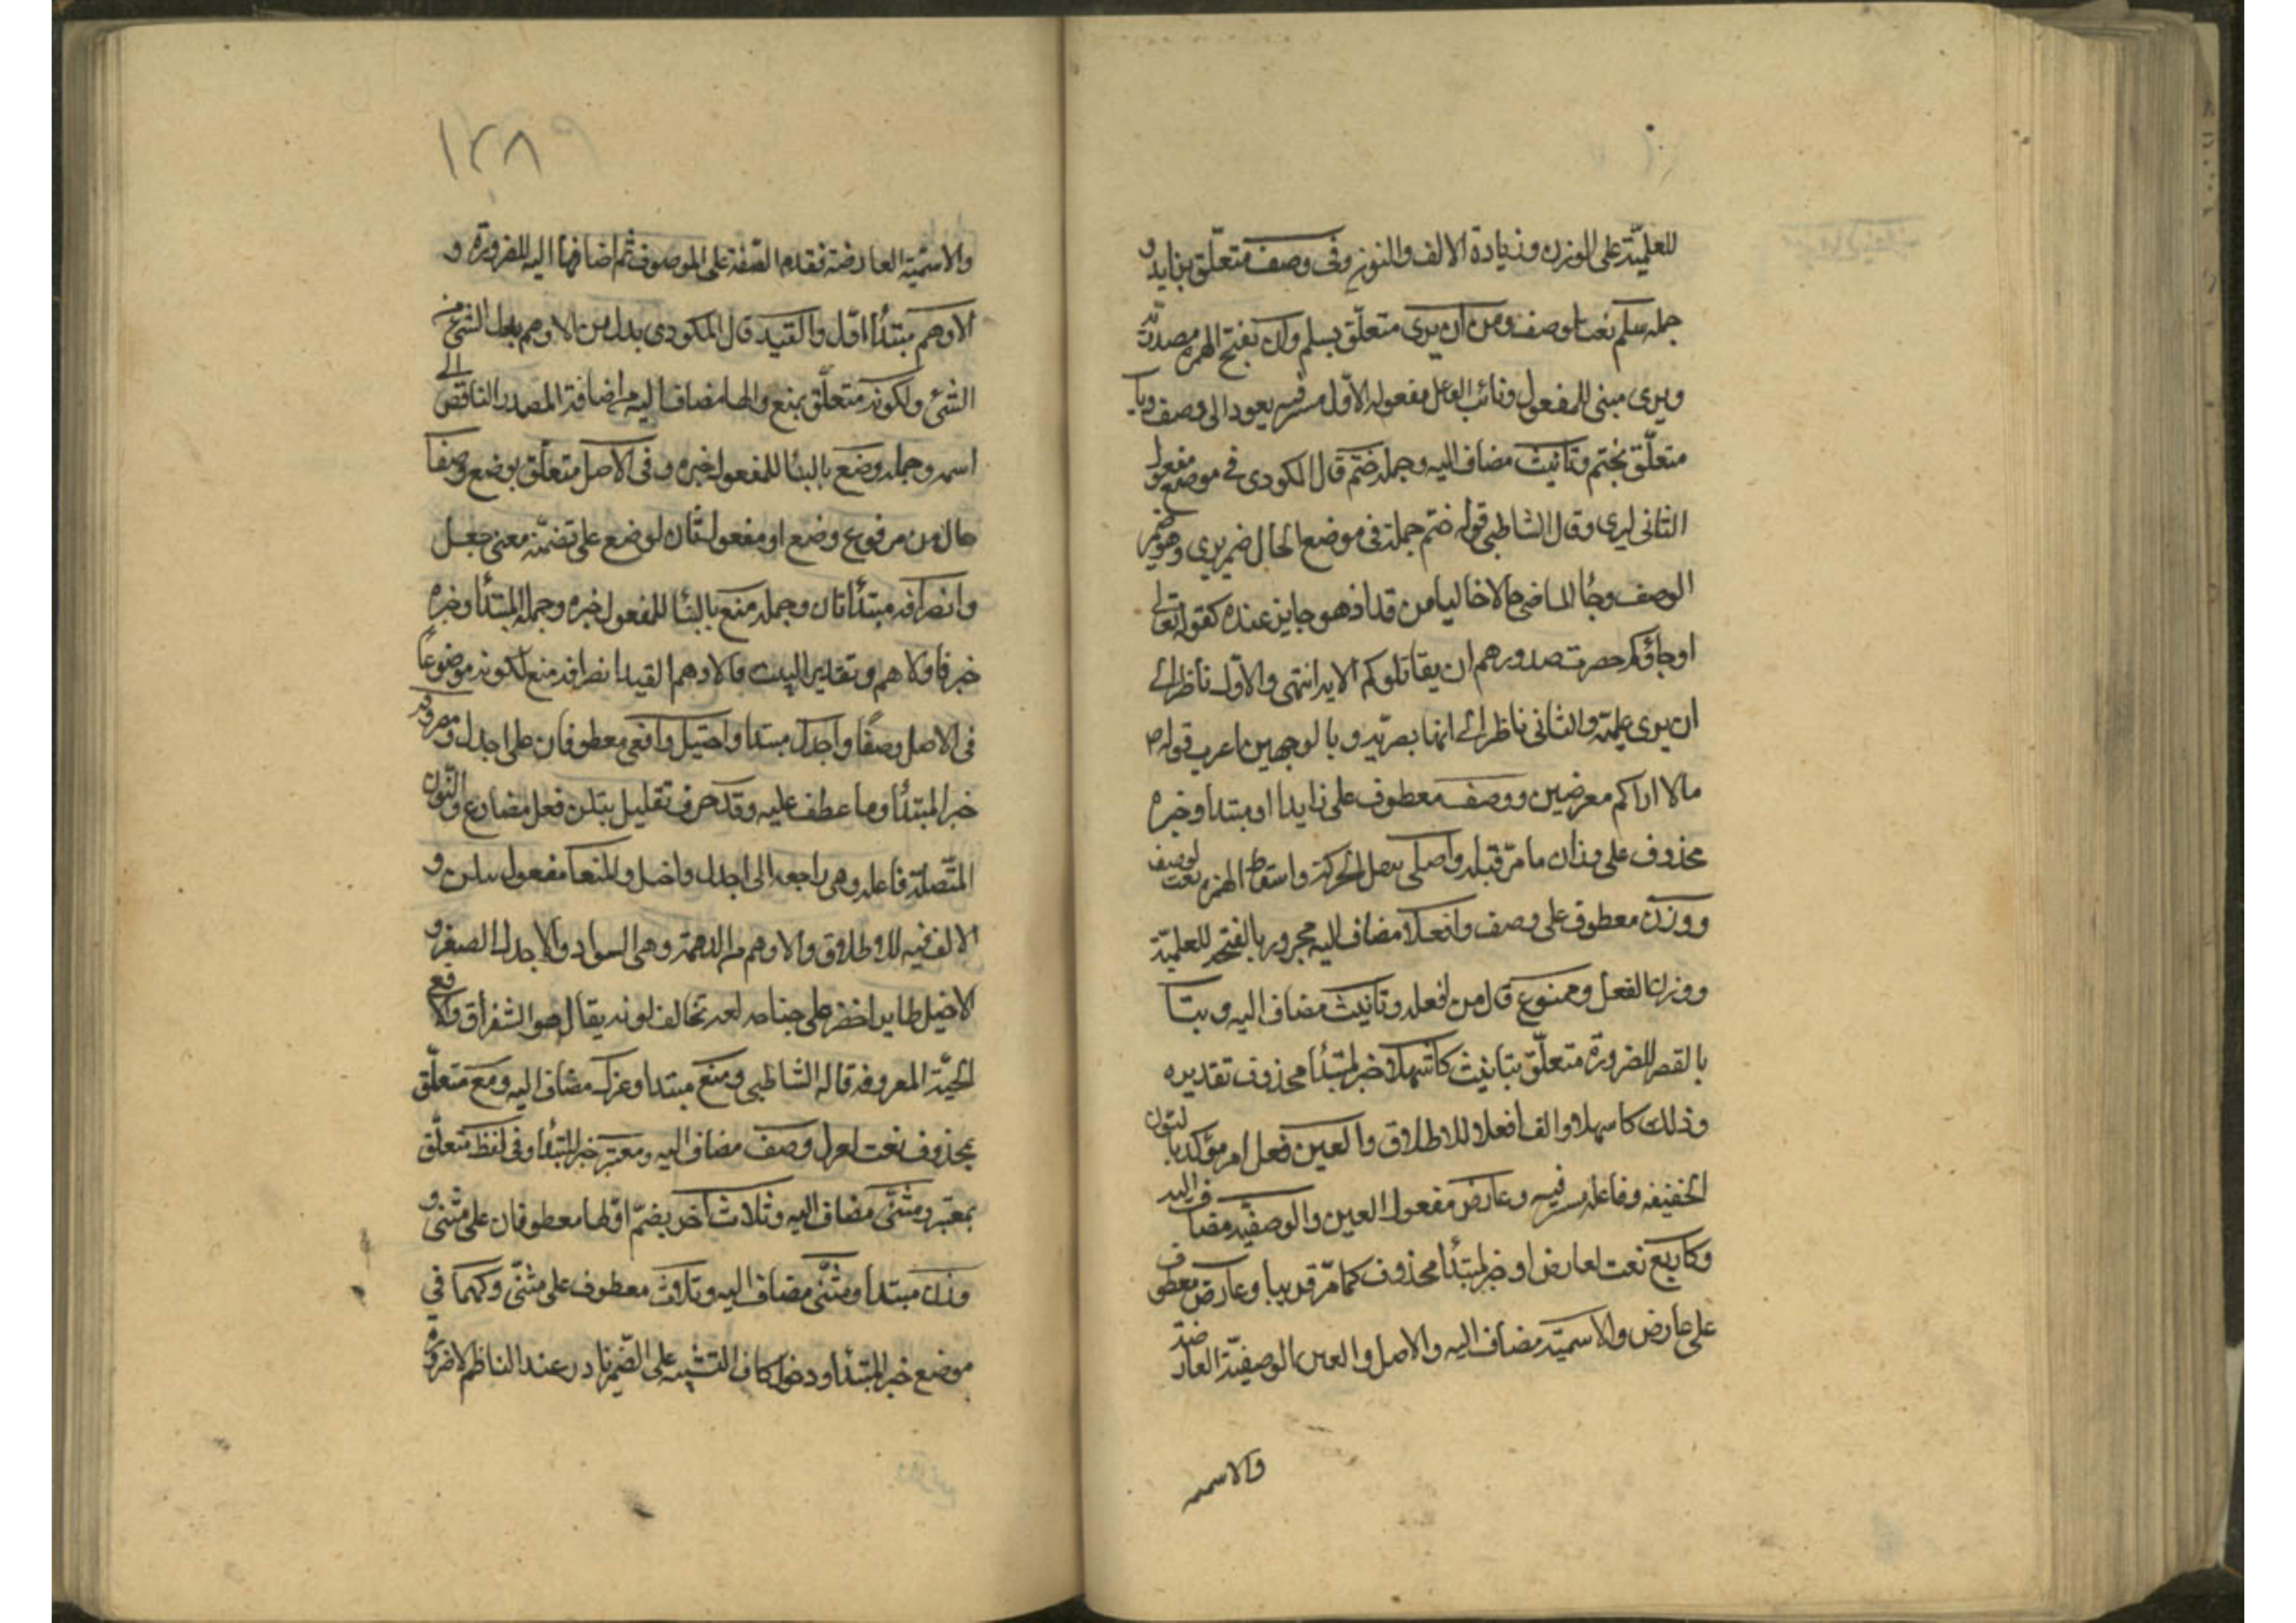 للعلميّة على الوزن وزيادة الالف والنون وفى وصف متعلّق بزايد و
جملة سلم نعت لوصف ومن ان يرى متعلّق بسلم وان بفتح الهمزة مصدرية
ويرى مبنى للمفعول ونائب الفاعل مفعوله الاوّل مستتر فيه يعود الى وصف وبتا
متعلّق بختم وتانيث مضاف اليه وجملة ختم قال المكودى فى موضع مفعول
الثانى ليرى وقال الشاطبى قوله ختم جملة فى موضع الحال ضمير يرى وهو ضمير
الوصف وجا الماضى حالا خاليا من قد اذ هو جايز عنده كقوله تعالى
او جاؤكم حصرت صدورهم ان يقاتلوكم الاية انتهى والاوّل ناظر الى
ان يرى علميّة والثانى ناظر الى انها بصريّة وبالوجهين اعرب قوله
مالا اراكم معرضين ووصف معطوف على زايدا او مبتدا وخبره
محذوف على وزان ما مرّ قبله واصلى بنقل الحركة واسقاط الهمزة نعت لوصف
ووزن معطوف على وصف وافعلا مضاف اليه مجرور بالفتحة للعلميّة
ووزن الفعل وممنوع قال من افعله وتانيث مضاف اليه وبتا
بالقصر للضرورة متعلّق بتانيث كاشهلا خبر لمبتدأ محذوف تقديره
وذلك كاسهلا والف افعلا للاطلاق والغين فعل امر مؤكد بالنون
الخفيفه وفاعله مستتر فيه وعارض مفعول الغين والوصفيّة مضاف اليه
وكاربع نعت لعارض او خبر لمبتدأ محذوف كما مرّ قريبا وعارض معطوف
على عارض والاسميّة مضاف اليه والاصل والغين الوصفيّة العارضة
والاسميه
١٢٨٩
والاسميّة العارضة فقدم الصّفة على الموصوف ثم اضافها اليه للضرورة و
الادهم مبتدأ اوّل والقيد قال المكودى بدل من الادهم بدل الشئ من
الشئ ولكونه متعلّق بمنع والها مضاف اليه من اضافة المصدر الناقص الى
اسمه وجملة وضع بالبنا للمفعول خبره وفى الاصل متعلّق بوضع وصفا
حال من مرفوع وضع او مفعول ثان لوضع على تضمّنه معنى جعل
وانصرافه مبتدأ ثان وجملة منع بالبنا للمفعول خبره وجملة المبتدأ وخبره
خبر فالادهم وتقدير البيت فالادهم القيد انصرافه منع لكونه موضوعًا
فى الاصل وصفًا واجدل مبتدا واخيل وافعى معطوفان على اجدل ومصروفة
خبر المبتدأ وما عطف عليه وقد حرف تقليل ينلن فعل مضارع والنّون
المتّصلة فاعله وهى راجعه الى اجدل واخيل والمنعا مفعول ينلن و
الالف فيه للاطلاق والادهم من الدهمة وهى السواد والاجدل الصقر و
الاخيل طاير اخضر على جناحه لمعه تخالف لونه يقال هو الشقراق والافعى
الحيّة المعروفه قاله الشاطبى ومنع مبتدا وعدل مضاف اليه ومع متعلّق
بمحذوف نعت لعدل وصف مضاف اليه ومعتبر خبر المبتدأ وفى لفظ متعلّق
بمعتبر ومثنى مضاف اليه وثلاث اخر بضمّ اوّلها معطوفان على مثنى و
وزن مبتدا ومثنّى مضاف اليه وثلاث معطوف على مثنّى وكهما فى
موضع خبر المبتدأ ودخول كاف التشبيه على الضّمير نادر عند الناظم لا ضرورة